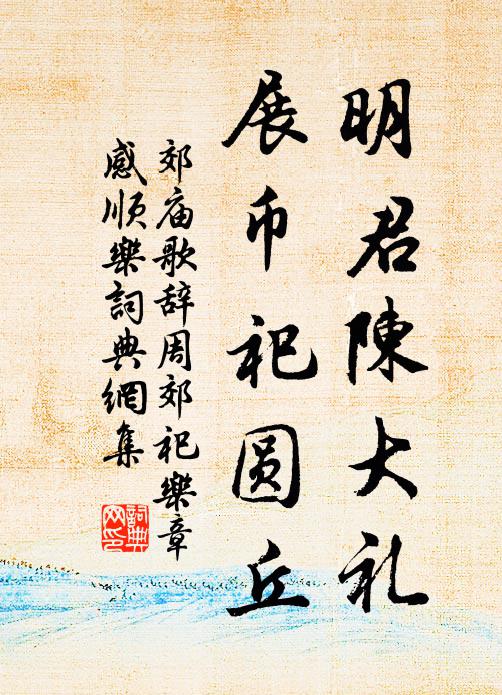 明君陳大礼
展币祀圆丘
郊庙歌辞周郊祀樂章
感顺樂詞典網集
詞典网印